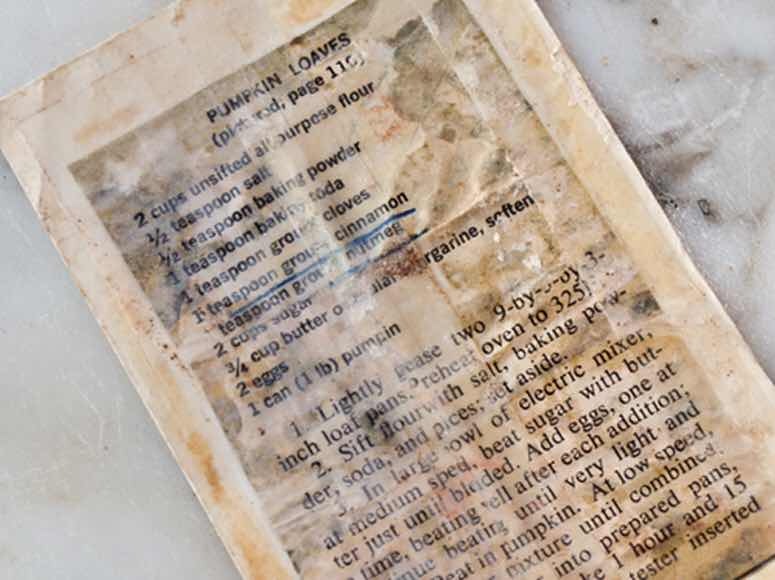 PUMPKIN LOAVES
(pictured, page 110)
2 cups unsifted all-purpose flour
½ teaspoon salt
½ teaspoon baking powder
1 teaspoon baking soda
1 teaspoon ground cloves
1 teaspoon ground cinnamon
teaspoon ground nutmeg
2 cups sugar
¾ cup butter or regular margarine, soften
2 eggs
1 can (1 lb) pumpkin
1. Lightly grease two 9-by-5-by 3-
inch loaf pans. Preheat oven to 325
2. Sift flour with salt, baking pow-
der, soda, and spices; set aside.
3. In large bowl of electric mixer,
at medium speed, beat sugar with but-
ter just until blended. Add eggs, one at
time, beating well after each addition;
beating until very light and
Beat in pumpkin. At low speed,
mixture until combined.
into prepared pans,
1 hour and 15
tester inserted